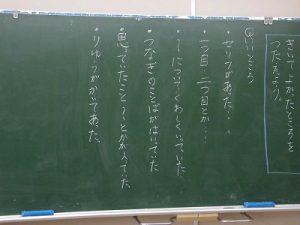 きいてよかったところを
つたえよう。
◎いいところ
・セリフがあった…
・一つ目、二つ目とか…
・〜についてくわしくいていた
・つなぎのことばがはいていた
・思ったこと〜とかが入ていた
・りゆうがかいてあった。